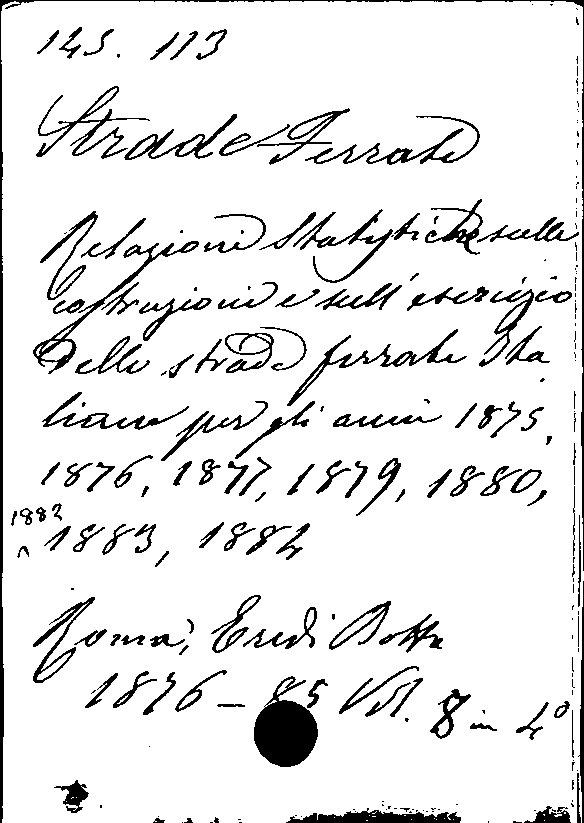 145. 113
Strade Ferrate
Relazioni Statistiche sulle
costruzioni e sull'esercizio
delle strade ferrate Ita
liane per gli anni 1875,
1876, 1877, 1879, 1880,
1882
^ 1883, 1884
Roma, Eredi Botta
1876 - 85 Vol. 8 in 4º